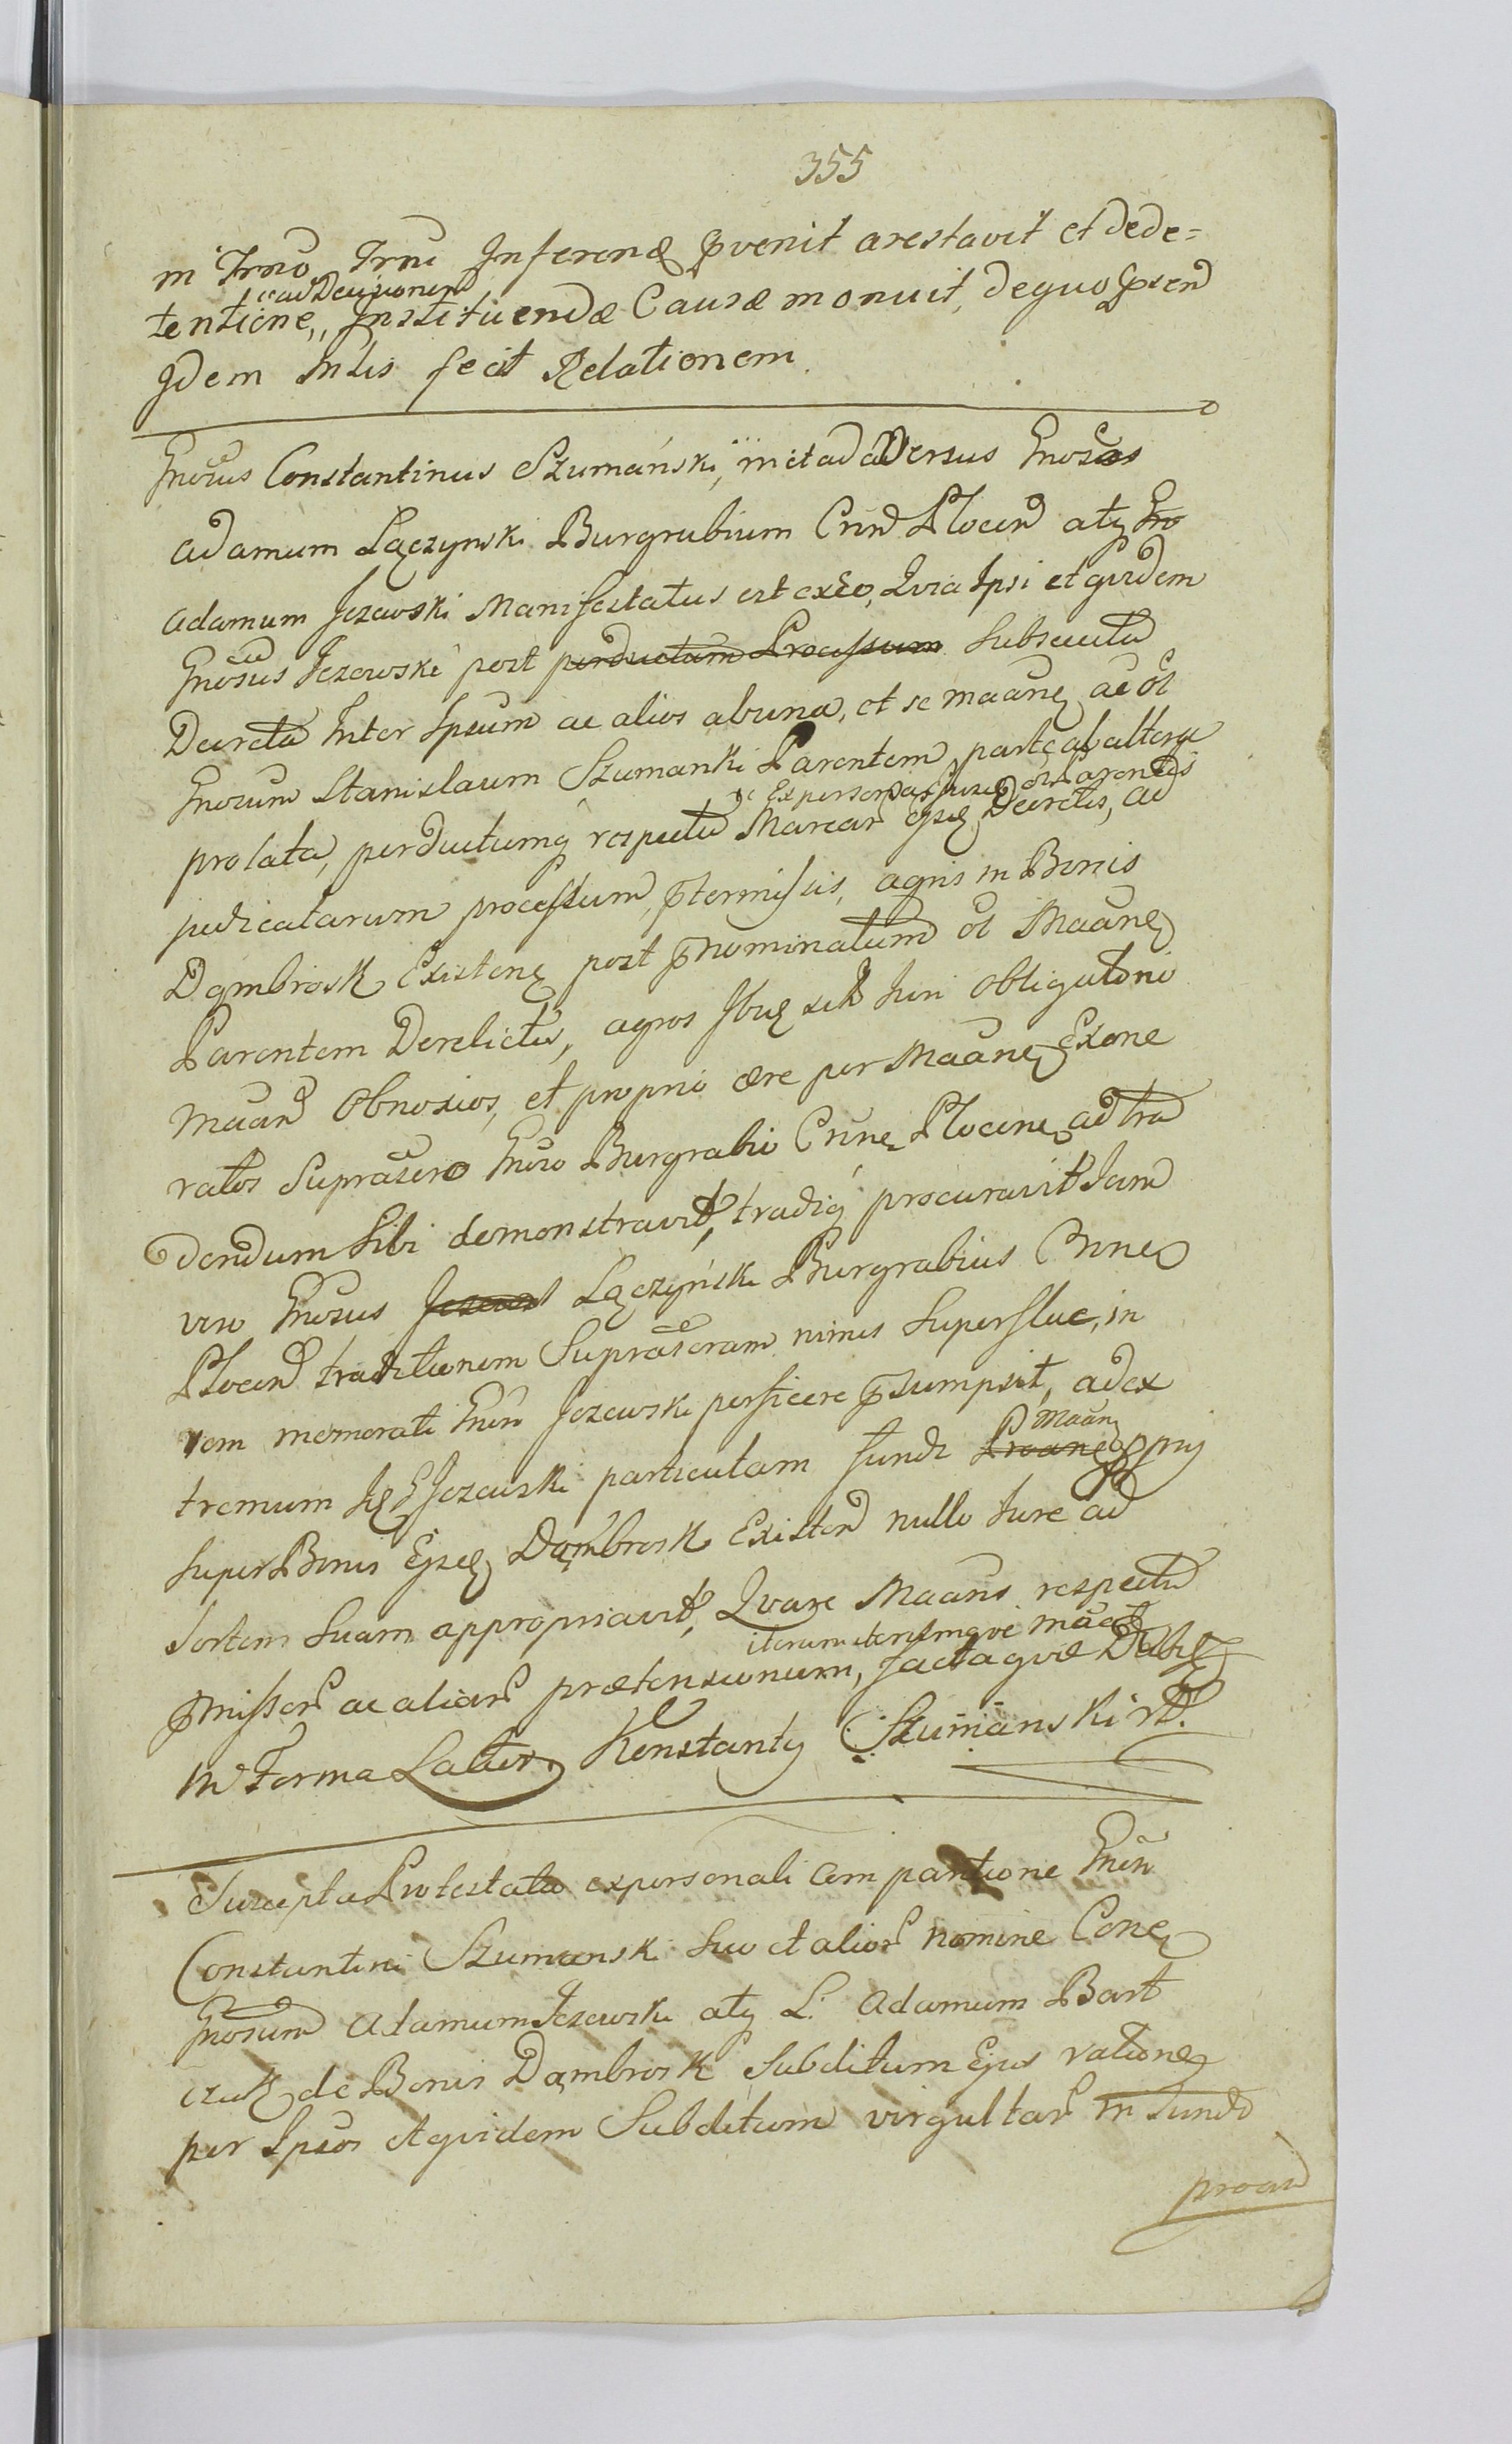 355
in Trno Trni Inferend pvenit arestavit et dede=
et ad Decisionem
tentione,, Instituendæ Causæ monuit, de quo psend
Idem Mlis fecit Relationem.
Gnosus Constantinus Szumański, in et ad adversus Gnosos
Adamum Łączynski Burgrabium Crnd Plocend atq Gno
Adamum Jezewski Manifestatus est exeo, Quia Ipsi et quidem
Gnosus Jezewski post perductum Processum subsecuta
Decreta Inter Ipsum ac alios ab una, et se maane ac ol
Gnosum Stanislaum Szumanki Parentem parte ab altera
prolata, perductumq respectu Marcar ejsd Decretis, ad
ex persona Parentis
judicatarum processum, ptermissis, agris in Bonis
Dąmbrosk Existene post pnominatum ol Maane
Parentem Derelictis, agros Juri obligatorio
Maane Obnoxios, et proprio ære per Maane Exone
ratos Suprascro Gnoso Burgrabio Crne Plocene ad tra
dendum sibi demonstravit, tradiq procuravit Jam
vero Gnosus Jezews Łączyński Burgrabius Crne
Plocend traditionem Suprascram nimis superflue, in
rem memorati Gnsi Jezewski perficere psumpsit, ad ex
tremum Jezewski particulam fundi Proane
Maane
super Bonis Ejsd Dąmbrosk Existend nullo Jure ad
Sortem suam appropriavit, Quare Maans respectu
iterum iterumque maat
pmissor ac aliar prætensionum, factaque
in Forma Latior, Konstanty Szumański
Suscepta Protestatio ex personali comparitione Gnsi
Constantini Szumanski suo et alior nomine Cone
Gnosum Adamum Jezewski atq L. Adamum Bart
czak de Bonis Dąmbrosk subditum Ejus ratione
per Ipsos et quidem Subditum virgultar in fundo
proan